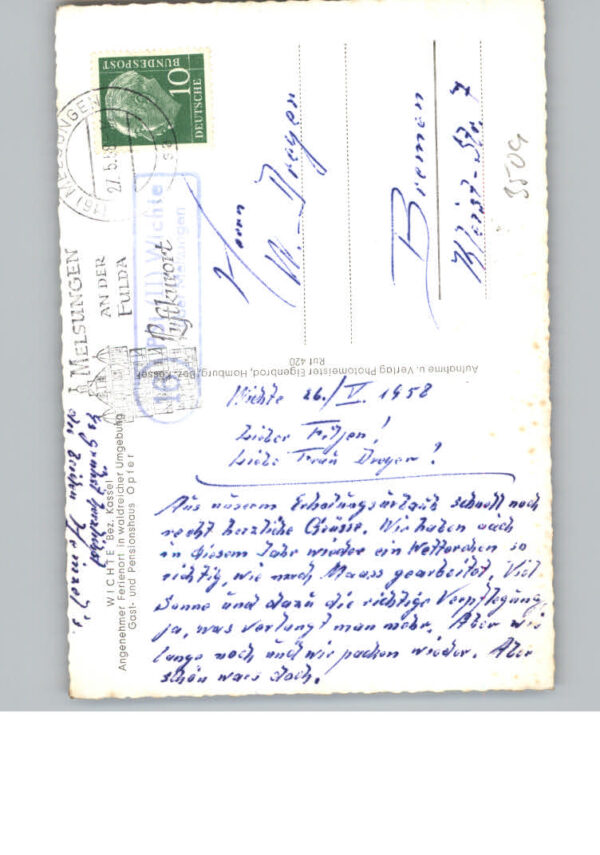 Wichte 26./V. 1958
Lieber Fitjen!
Liebe Frau Dreyer!
Aus unserem Erholungsurlaub schnell noch
recht herzliche Grüsse. Wir haben auch
in diesem Jahr wieder ein Wetterchen so
richtig, wie nach Maass gearbeitet. Viel
Sonne und dazu die richtige Verpflegung,
ja, was verlangt man mehr. Aber wie
lange noch und wir packen wieder. Aber
schön wars doch.
Es grüsst herzlichst
die beiden
WICHTE Bez. Kassel
Angenehmer Ferienort in waldreicher Umgebung
Gast- und Pensionshaus Opfer
Aufnahme u. Verlag Photomeister Eigenbrod, Homburg/Bez. Kassel
Ruf 420
DEUTSCHE
BUNDESPOST
10
(16) MELSUNGEN
27.5.58
MELSUNGEN
AN DER
FULDA
Luftkurort
(16)
Wichte
Melsungen
Herrn
W. Dreyer
Bremen
Str. 7
3509